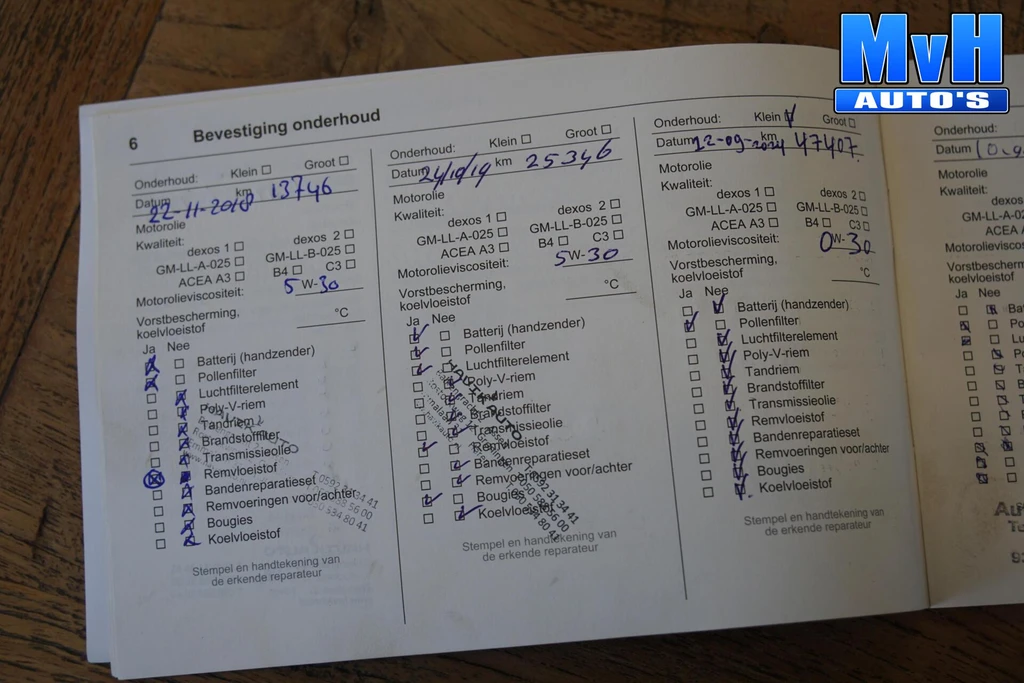 MvH
AUTO'S
6
Bevestiging onderhoud
Onderhoud: Klein Groot
Datum 22-11-2018 km 13746
Motorolie
Kwaliteit:
dexos 1 dexos 2
GM-LL-A-025 GM-LL-B-025
ACEA A3 B4 C3
Motorolieviscositeit: 5 W-30
Vorstbescherming,
koelvloeistof °C
Ja Nee
Batterij (handzender)
Pollenfilter
Luchtfilterelement
Poly-V-riem
Tandriem
Brandstoffilter
Transmissieolie
Remvloeistof
Bandenreparatieset
Remvoeringen voor/achter
Bougies
Koelvloeistof
Stempel en handtekening van
de erkende reparateur
Onderhoud: Klein Groot
Datum 24/10/19 km 25346
Motorolie
Kwaliteit:
dexos 1 dexos 2
GM-LL-A-025 GM-LL-B-025
ACEA A3 B4 C3
Motorolieviscositeit: 5 W-30
Vorstbescherming,
koelvloeistof °C
Ja Nee
Batterij (handzender)
Pollenfilter
Luchtfilterelement
Poly-V-riem
Tandriem
Brandstoffilter
Transmissieolie
Remvloeistof
Bandenreparatieset
Remvoeringen voor/achter
Bougies
Koelvloeistof
AUTO
T. 0592 31 34 41
Stempel en handtekening van
de erkende reparateur
Onderhoud: Klein Groot
Datum 12-09-2024 km 47407
Motorolie
Kwaliteit:
dexos 1 dexos 2
GM-LL-A-025 GM-LL-B-025
ACEA A3 B4 C3
Motorolieviscositeit: 0W-30
Vorstbescherming,
koelvloeistof °C
Ja Nee
Batterij (handzender)
Pollenfilter
Luchtfilterelement
Poly-V-riem
Tandriem
Brandstoffilter
Transmissieolie
Remvloeistof
Bandenreparatieset
Remvoeringen voor/achter
Bougies
Koelvloeistof
Stempel en handtekening van
de erkende reparateur
Onderhoud:
Datum
Motorolie
Kwaliteit:
GM-LL-A
ACEA
Ja Nee